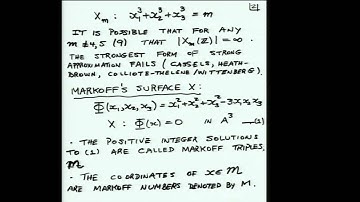 [2]
X_m : x_1^3 + x_2^3 + x_3^3 = m
IT IS POSSIBLE THAT FOR ANY
m ≢ 4, 5 (9) THAT |X_m(ℤ)| = ∞.
THE STRONGEST FORM OF STRONG
APPROXIMATION FAILS (CASSELS, HEATH-
BROWN, COLLIOTE-THELENE/WITTENBERG).
MARKOFF'S SURFACE X:
Φ(x_1, x_2, x_3) = x_1^2 + x_2^2 + x_3^2 - 3x_1x_2x_3
X : Φ(x) = 0 IN A^3 —(1)
• THE POSITIVE INTEGER SOLUTIONS
TO (1) ARE CALLED MARKOFF TRIPLES,
M
• THE COORDINATES OF x ∈ M
ARE MARKOFF NUMBERS DENOTED BY M.